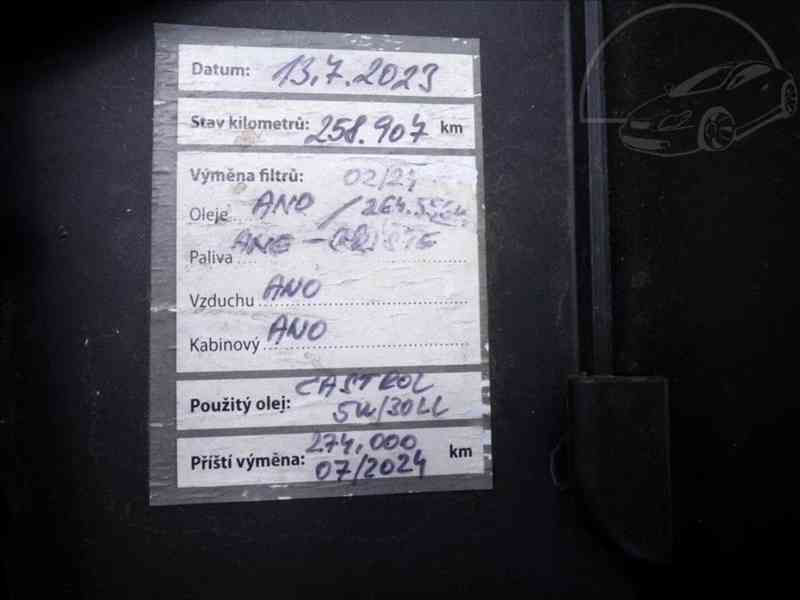 Datum: 13.7.2023
Stav kilometrů: 258.907 km
Výměna filtrů: 02/24
Oleje ANO / 264.
Paliva
Vzduchu ANO
Kabinový ANO
Použitý olej: CASTROL
5W/30LL
Příští výměna: 274.000 km
07/2024